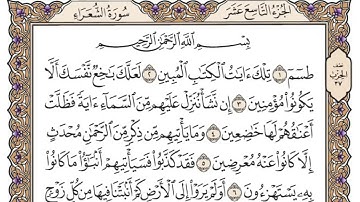 الجزء التاسع عشر سورة الشعراء
بسم الله الرحمن الرحيم
طسٓمٓ ١ تِلْكَ ءَايَٰتُ ٱلْكِتَٰبِ ٱلْمُبِينِ ٢ لَعَلَّكَ بَٰخِعٌ نَّفْسَكَ أَلَّا
يَكُونُوا۟ مُؤْمِنِينَ ٣ إِن نَّشَأْ نُنَزِّلْ عَلَيْهِم مِّنَ ٱلسَّمَآءِ ءَايَةً فَظَلَّتْ
أَعْنَٰقُهُمْ لَهَا خَٰضِعِينَ ٤ وَمَا يَأْتِيهِم مِّن ذِكْرٍ مِّنَ ٱلرَّحْمَٰنِ مُحْدَثٍ
إِلَّا كَانُوا۟ عَنْهُ مُعْرِضِينَ ٥ فَقَدْ كَذَّبُوا۟ فَسَيَأْتِيهِمْ أَنۢبَٰٓؤُا۟ مَا كَانُوا۟
بِهِۦ يَسْتَهْزِءُونَ ٦ أَوَلَمْ يَرَوْا۟ إِلَى ٱلْأَرْضِ كَمْ أَنۢبَتْنَا فِيهَا مِن كُلِّ زَوْجٍ